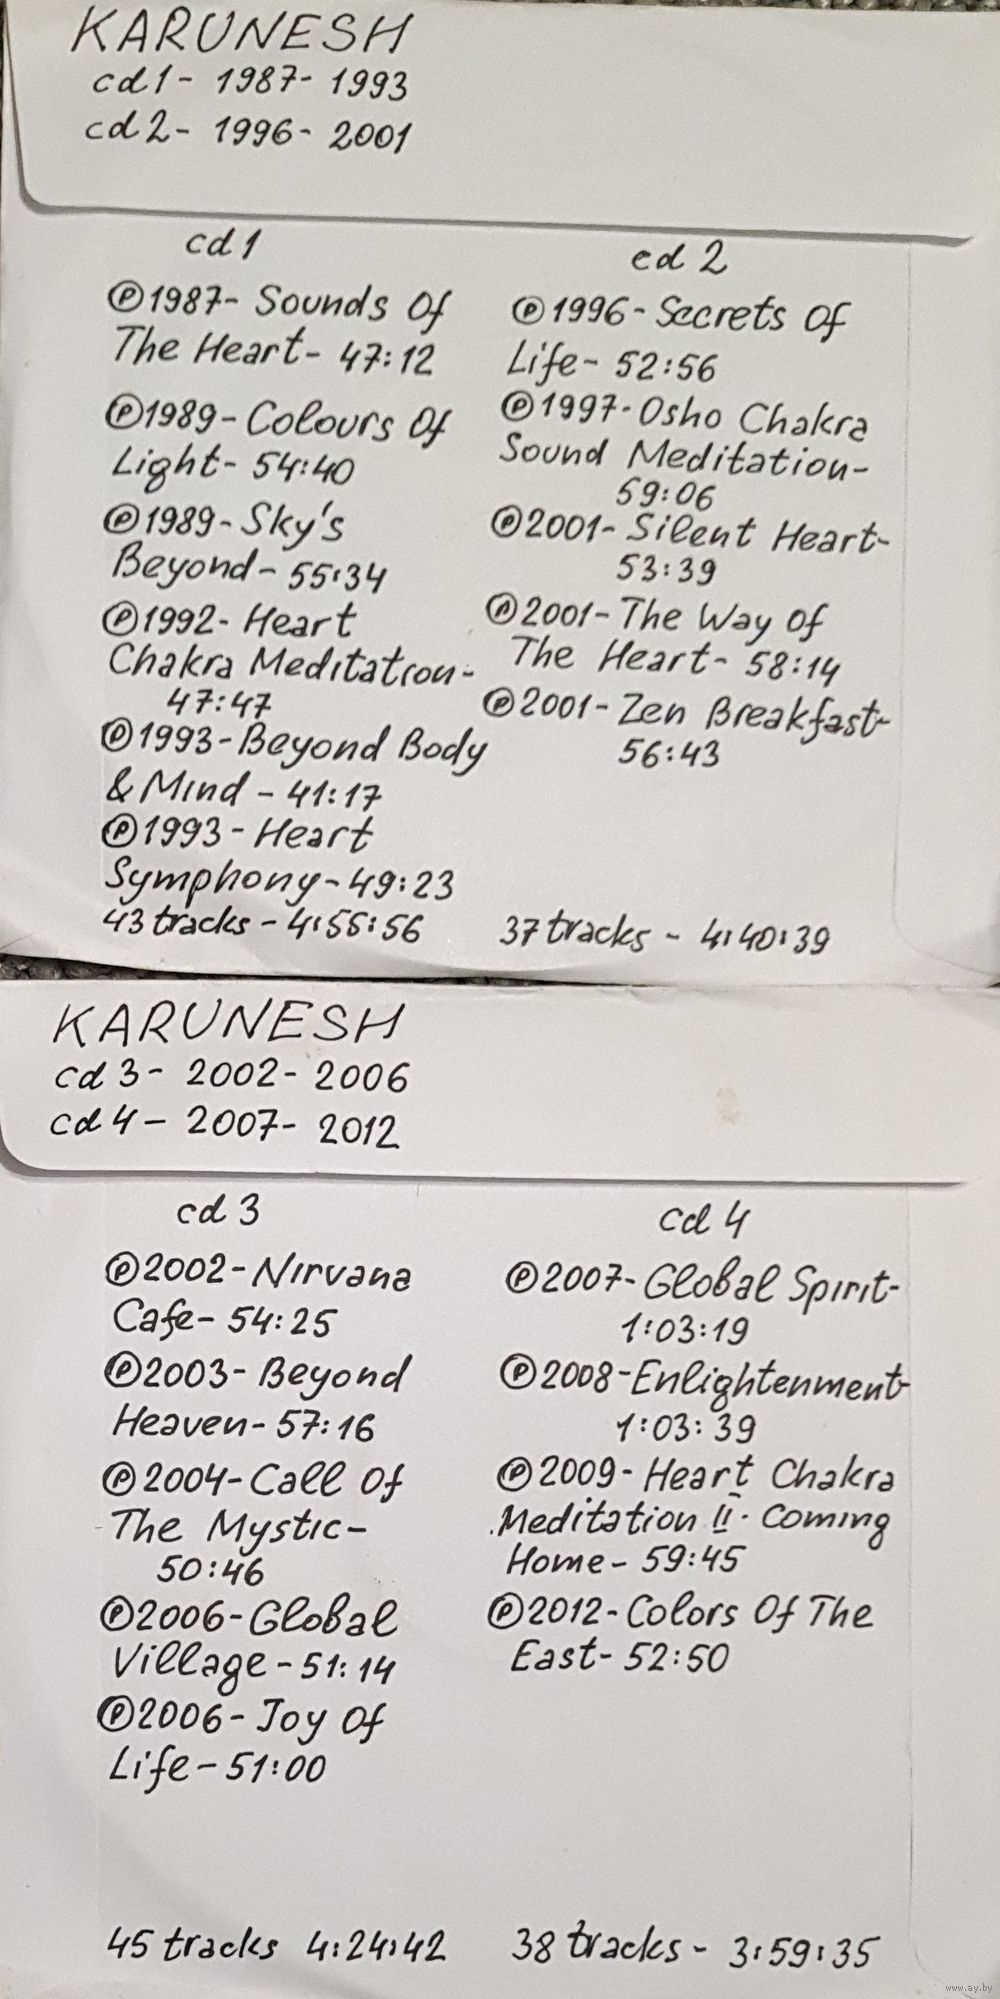 KARUNESH
cd1- 1987- 1993
cd2- 1996- 2001
cd 1
℗1987- Sounds Of
The Heart- 47:12
℗1989- Colours Of
Light- 54:40
℗1989- Sky's
Beyond- 55:34
℗1992- Heart
Chakra Meditation-
47:47
℗1993- Beyond Body
& Mind - 41:17
℗1993- Heart
Symphony- 49:23
43 tracks - 4:55:56
cd 2
℗1996- Secrets Of
Life- 52:56
℗1997- Osho Chakra
Sound Meditation-
59:06
℗2001- Silent Heart-
53:39
℗2001- The Way Of
The Heart- 58:14
℗2001- Zen Breakfast-
56:43
37 tracks - 4:40:39
KARUNESH
cd 3- 2002- 2006
cd 4- 2007- 2012
cd 3
℗2002- Nirvana
Cafe- 54:25
℗2003- Beyond
Heaven- 57:16
℗2004- Call Of
The Mystic-
50:46
℗2006- Global
Village- 51:14
℗2006- Joy Of
Life- 51:00
45 tracks 4:24:42
cd 4
℗2007- Global Spirit-
1:03:19
℗2008- Enlightenment-
1:03:39
℗2009- Heart Chakra
Meditation II. Coming
Home- 59:45
℗2012- Colors Of The
East- 52:50
38 tracks - 3:59:35
www.ay.by